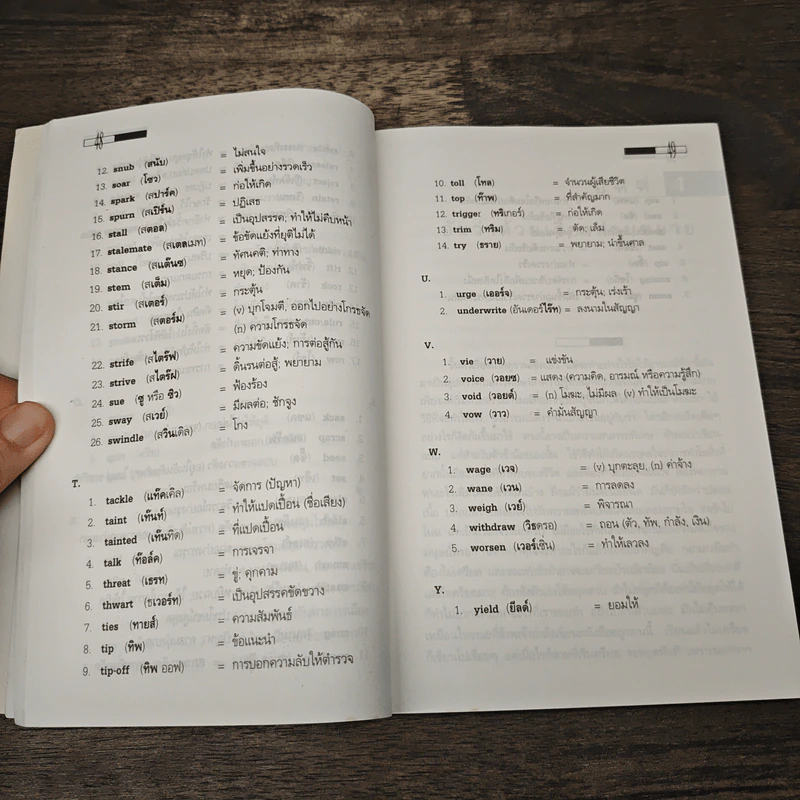 12. snub (สนับ) = ไม่สนใจ
13. soar (โซว) = เพิ่มขึ้นอย่างรวดเร็ว
14. spark (สปาร์ค) = ก่อให้เกิด
15. spurn (สเปิร์น) = ปฏิเสธ
16. stall (สตอล) = เป็นอุปสรรค; ทำให้ไม่คืบหน้า
17. stalemate (สเตลเมท) = ข้อขัดแย้งที่ยุติไม่ได้
18. stance (สแต๊นซ) = ทัศนคติ; ท่าทาง
19. stem (สเต็ม) = หยุด; ป้องกัน
20. stir (สเตอร์) = กระตุ้น
21. storm (สตอร์ม) = (v) บุกโจมตี, ออกไปอย่างโกรธจัด
(n) ความโกรธจัด
22. strife (สไตร๊ฟ) = ความขัดแย้ง; การต่อสู้กัน
23. strive (สไตร๊ฝ) = ดิ้นรนต่อสู้; พยายาม
24. sue (ซู หรือ ซิว) = ฟ้องร้อง
25. sway (สเวย์) = มีผลต่อ; ชักจูง
26. swindle (สวินเดิล) = โกง
T.
1. tackle (แท๊คเคิล) = จัดการ (ปัญหา)
2. taint (เท๊นท์) = ทำให้แปดเปื้อน (ชื่อเสียง)
3. tainted (เท๊นทิด) = ที่แปดเปื้อน
4. talk (ท๊อล์ค) = การเจรจา
5. threat (เธรท) = ขู่; คุกคาม
6. thwart (ธเวอร์ท) = เป็นอุปสรรคขัดขวาง
7. ties (ทายส์) = ความสัมพันธ์
8. tip (ทิพ) = ข้อแนะนำ
9. tip-off (ทิพ ออฟ) = การบอกความลับให้ตำรวจ
10. toll (โทล) = จำนวนผู้เสียชีวิต
11. top (ท๊าพ) = ที่สำคัญมาก
12. trigger (ทริเกอร์) = ก่อให้เกิด
13. trim (ทริม) = ตัด; เล็ม
14. try (ธราย) = พยายาม; นำขึ้นศาล
U.
1. urge (เออร์จ) = กระตุ้น; เร่งเร้า
2. underwrite (อันเดอร์ไร๊ท) = ลงนามในสัญญา
V.
1. vie (วาย) = แข่งขัน
2. voice (วอยซ) = แสดง (ความคิด, อารมณ์ หรือความรู้สึก)
3. void (วอยด์) = (n) โมฆะ, ไม่มีผล (v) ทำให้เป็นโมฆะ
4. vow (วาว) = คำมั่นสัญญา
W.
1. wage (เวจ) = (v) บุกตะลุย, (n) ค่าจ้าง
2. wane (เวน) = การลดลง
3. weigh (เวย์) = พิจารณา
4. withdraw (วิธดรอ) = ถอน (ตัว, ทัพ, กำลัง, เงิน)
5. worsen (เวอร์เซิ่น) = ทำให้เลวลง
Y.
1. yield (ยีลด์) = ยอมให้